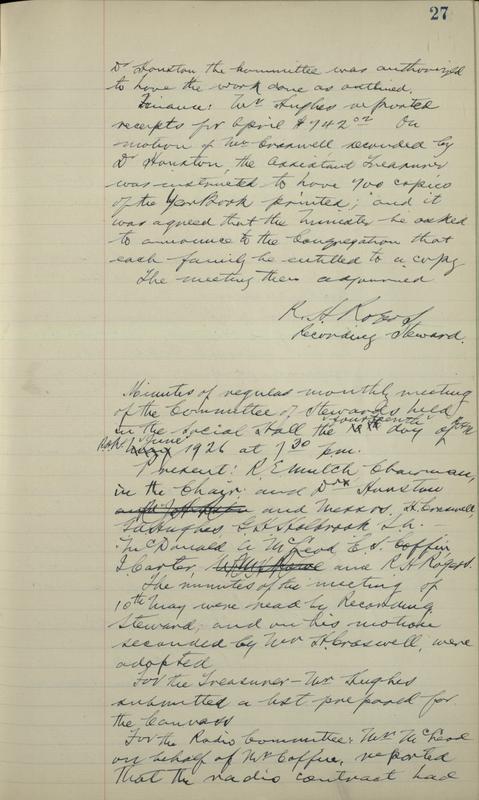 27
Dr Houston the Committee was authorized
to have the work done as outlined.
Finance: Mr Hughes reported
receipts for April $742.02 On
motion of Mr Craswell seconded by
Dr Houston, the Assistant Treasurer
was instructed to have 700 copies
of the Year Book printed; and it
was agreed that the Minister be asked
to announce to the Congregation that
each family be entitled to a copy
The meeting then adjourned
R. H. Rogers
Recording Steward.
Minutes of regular monthly meeting
of the Committee of Stewards held
in the Social Hall the fourteenth day of
June 1926 at 7 30 pm.
Present: R. E. Mutch Chairman,
in the Chair, and Drs Houston
and Messrs. H. Craswell,
Hughes, G. H. Holbrook, L. h.
McDonald A McLeod E. S. Coffin
J. Carter, and R. H. Rogers.
The minutes of the meeting of
10th May were read by Recording
Steward, and on his motion
seconded by Mr H. Craswell, were
adopted
For the Treasurer - Mr Hughes
submitted a list prepared for
the Canvass
For the Radio Committee: Mr McLeod
on behalf of Mr Coffin, reported
that the radio contract had